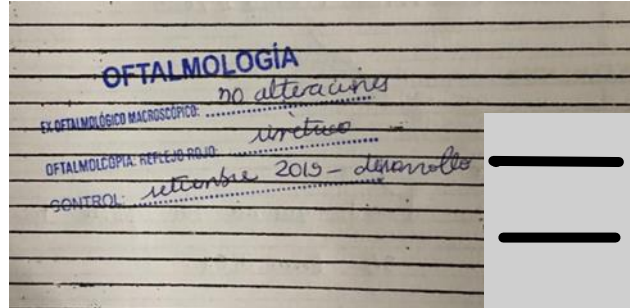 OFTALMOLOGÍA
EX. OFTALMOLÓGICO MACROSCÓPICO: no alteraciones
OFTALMOLCOPIA: REFLEJO ROJO: simétrico
CONTROL: settembre 2019 - desarrollo